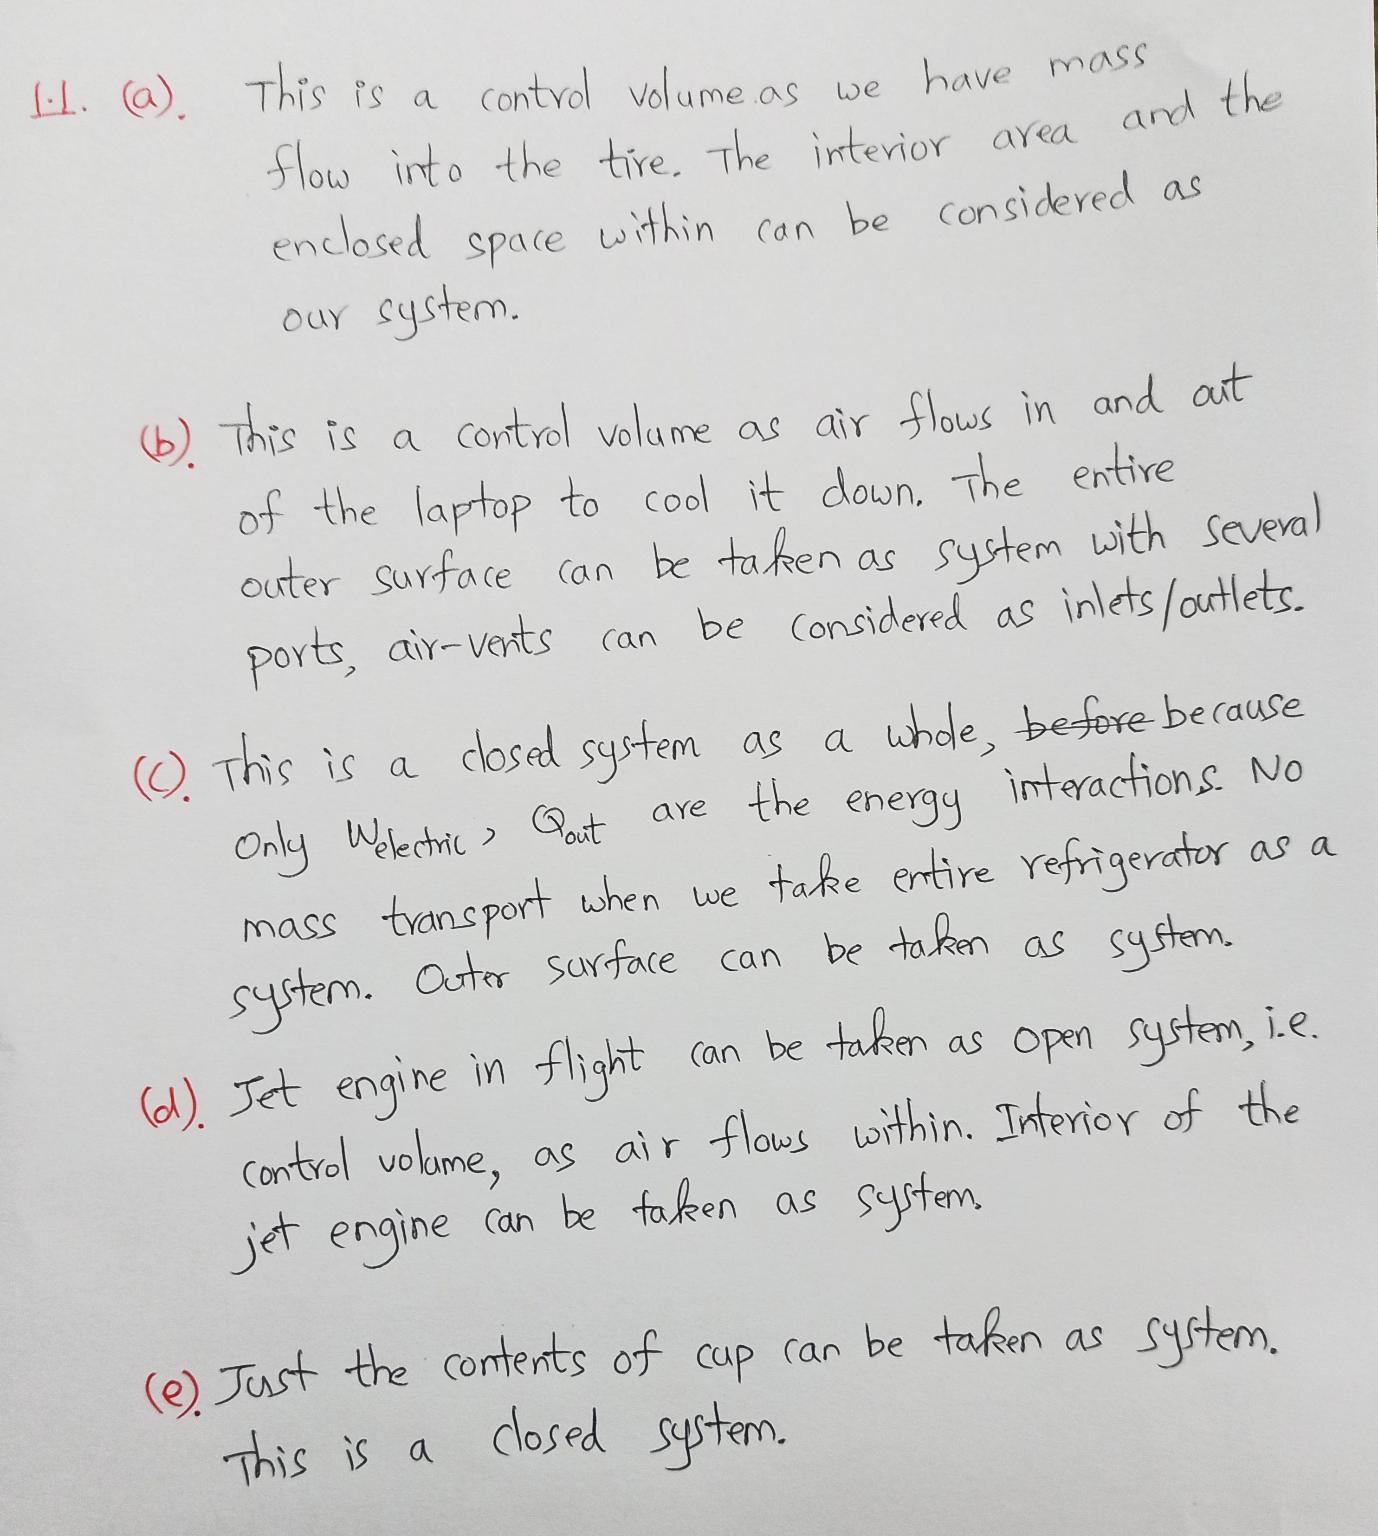 1.1. (a). This is a control volume as we have mass
flow into the tire. The interior area and the
enclosed space within can be considered as
our system.
(b). This is a control volume as air flows in and out
of the laptop to cool it down. The entire
outer surface can be taken as system with several
ports, air-vents can be considered as inlets/outlets.
(c). This is a closed system as a whole, before because
Only Welectric, Qout are the energy interactions. No
mass transport when we take entire refrigerator as a
system. Outer surface can be taken as system.
(d). Jet engine in flight can be taken as open system, i.e.
control volume, as air flows within. Interior of the
jet engine can be taken as system.
(e). Just the contents of cup can be taken as system.
This is a closed system.